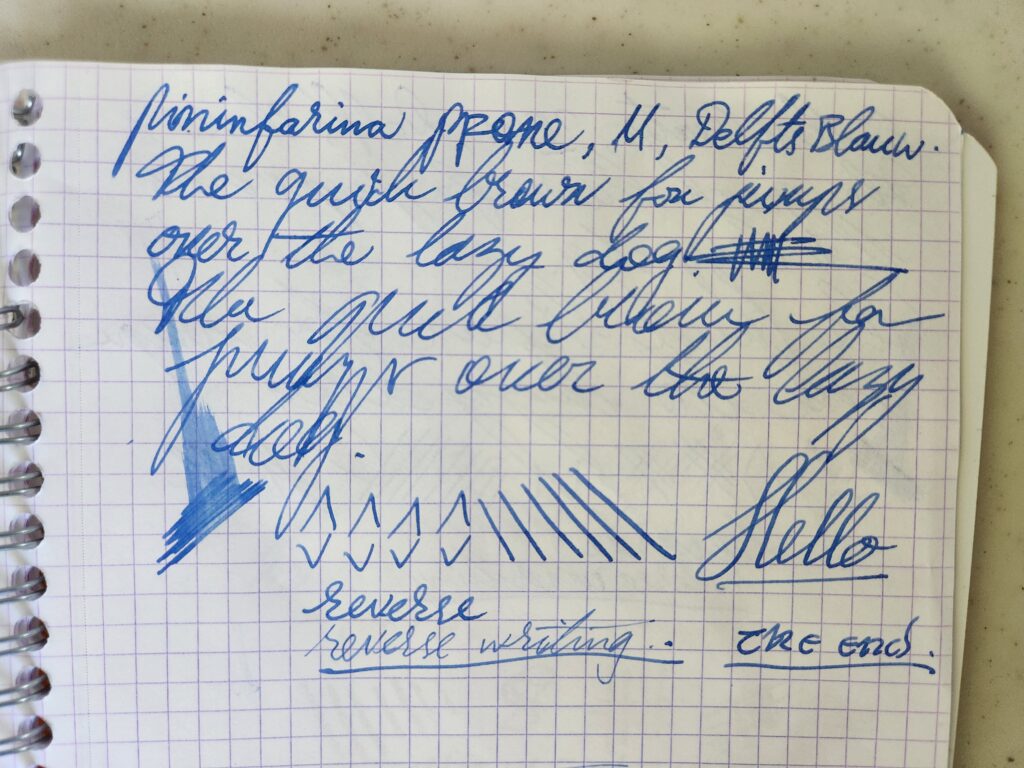 Pininfarina PFone, M, Delfts Blauw.
The quick brown fox jumps
over the lazy dog.
The quick brown fox
jumps over the lazy
dog.
Hello
reverse
reverse writing...
THE END.